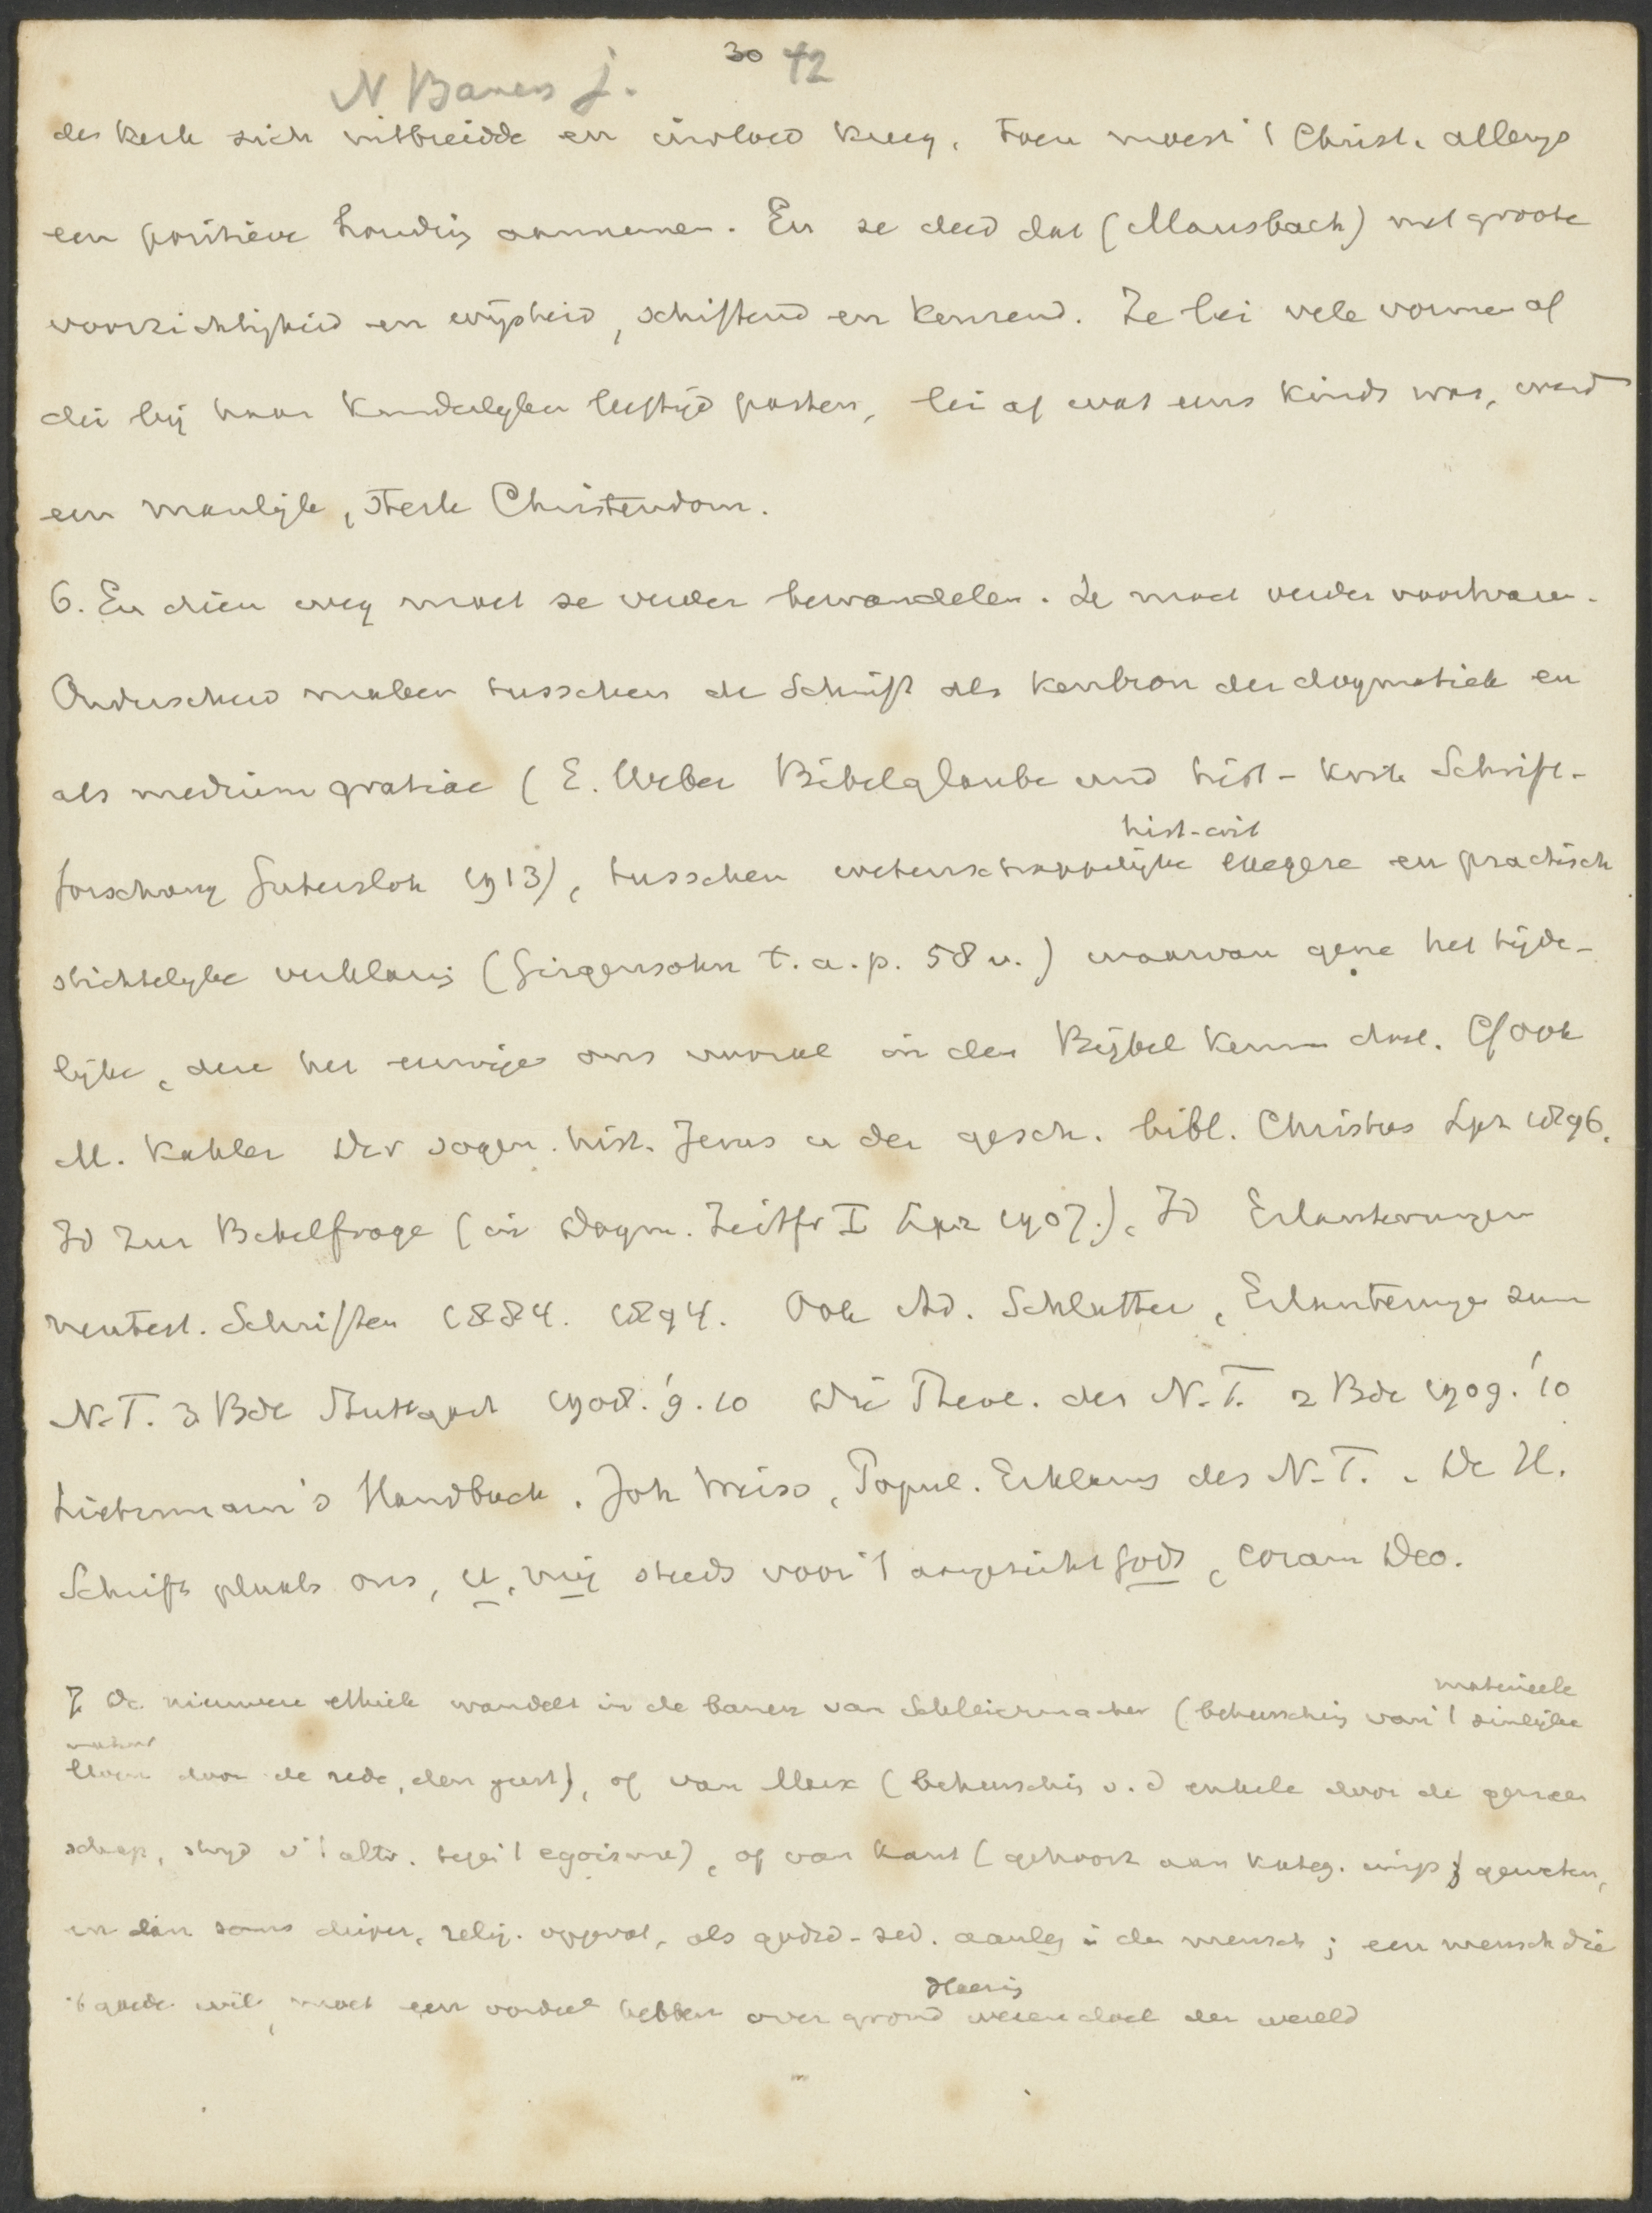 30 42
N Banens j.
der kerk zich uitbreidde en invloed kreeg. Toen moest 't Christ. allengs
een positieve houding aannemen. En ze deed dat (Mausbach) met groote
voorzichtigheid en wijsheid, schiftend en keurend. Ze lei vele vormen af
die bij haar kinderlyken leeftijd pasten, lei af wat eens kinds was, werd
een manlijk, sterk Christendom.
6. En dien weg moet ze verder bewandelen. Ze moet verder voortvaren.
Onderscheid maken tusschen de Schrift als kenbron der dogmatiek en
als medium gratiae (E. Weber Bibelglaube und hist-krit Schrift-
hist-crit
forschung Gutersloh 1913), tusschen wetenschappelijke exegese en practisch
stichtelyke verklaring (Girgensohn t.a.p. 58 v.) waarvan gene het tijde-
lijke, deze het eeuwige ons vooral in den Bijbel kennen doet. Cf ook
M. Kahler Der sogen. hist. Jezus u der gesch. bibl. Christus Lpz 1896.
Id Zur Bibelfrage (in Dogm. Zeitfr I Lpz 1907.), Id Erlauterungen
neutest. Schriften 1884. 1894. Ook Ad. Schlatter, Erlauterungen zum
N.T. 3 Bde Stuttgart 1908. '9. 10 Die Theol. des N.T. 2 Bde 1909. '10
Lietzmann's Handbuch. Joh Weiss, Popul. Erklarung des N.T. De H.
Schrift plaatst ons, u, mij steeds voor 't aangezicht Gods, coram Deo.
materieele
7 De nieuwere ethiek wandelt in de banen van Schleiermacher (beheersching van 't zinlijke
natuur
leven door de rede, den geest), of van Marx (beheersching v. d enkele door de gemeen
schap, stryd v 't altr. tegen 't egoisme), of van Kant (gehoorz aan kateg. imp geweten,
en dan soms dieper, relig. opgevat, als godsd-zed. aanleg in den mensch; een mensch die
't goede wil, moet een oordeel hebben over grond wezen doel der wereld
Heering